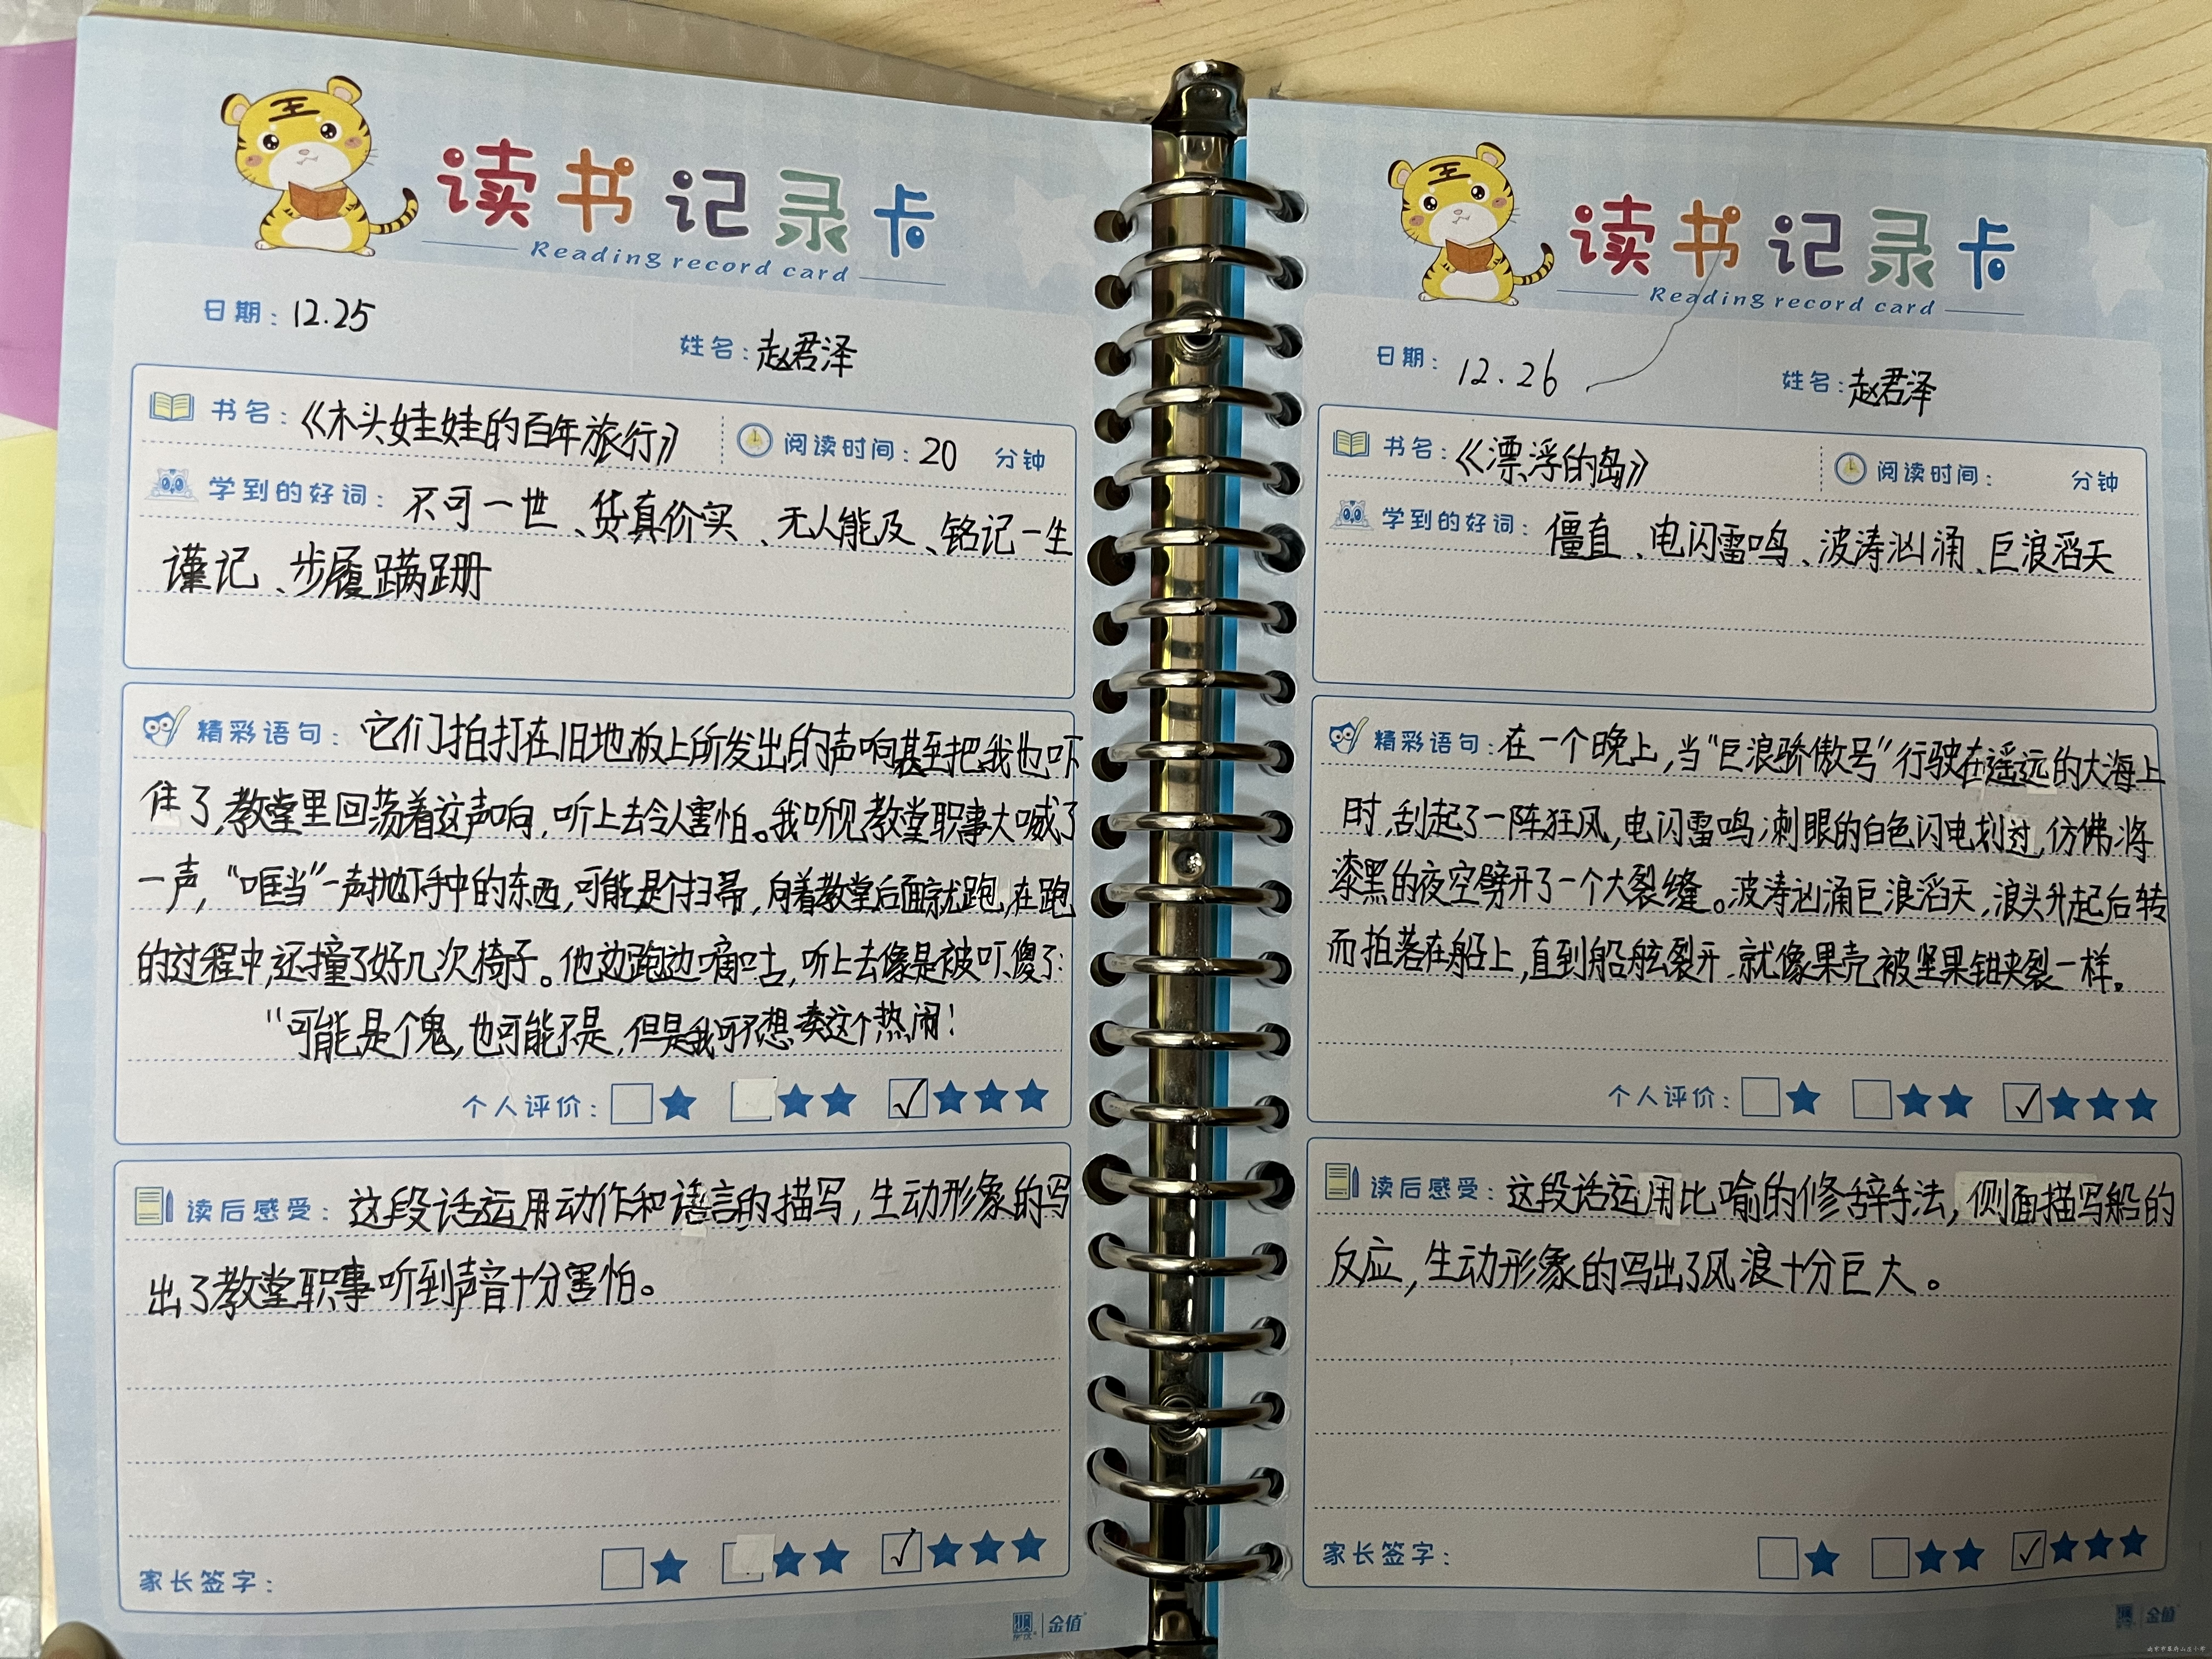 读书记录卡
Reading record card
日期：12.25
姓名：赵君泽
书名：《木头娃娃的百年旅行》 阅读时间：20 分钟
学到的好词：不可一世、货真价实、无人能及、铭记一生
谨记、步履蹒跚
精彩语句：它们拍打在旧地板上所发出的声响甚至把我也吓
住了,教堂里回荡着这声响,听上去令人害怕。我听见教堂职事大喊了
一声,“哐当”一声抛下手中的东西,可能是个扫帚,向着教堂后面就跑,在跑
的过程中,还撞了好几次椅子。他边跑边嘀咕,听上去像是被吓傻了:
“可能是个鬼,也可能不是,但是我可不想凑这个热闹!
个人评价：
这段话运用动作和语言的描写,生动形象的写
读后感受：
出了教堂职事听到声音十分害怕。
家长签字：
金值
读书记录卡
Reading record card
日期：12.26
姓名：赵君泽
书名：《漂浮的岛》 阅读时间： 分钟
学到的好词：僵直、电闪雷鸣、波涛汹涌、巨浪滔天
精彩语句：在一个晚上,当“巨浪骄傲号”行驶在遥远的大海上
时,刮起了一阵狂风,电闪雷鸣,刺眼的白色闪电划过,仿佛将
漆黑的夜空劈开了一个大裂缝。波涛汹涌巨浪滔天,浪头升起后转
而拍落在船上,直到船舷裂开,就像果壳被坚果钳夹裂一样。
个人评价：
读后感受：这段话运用比喻的修辞手法,侧面描写船的
反应,生动形象的写出了风浪十分巨大。
家长签字：
金值